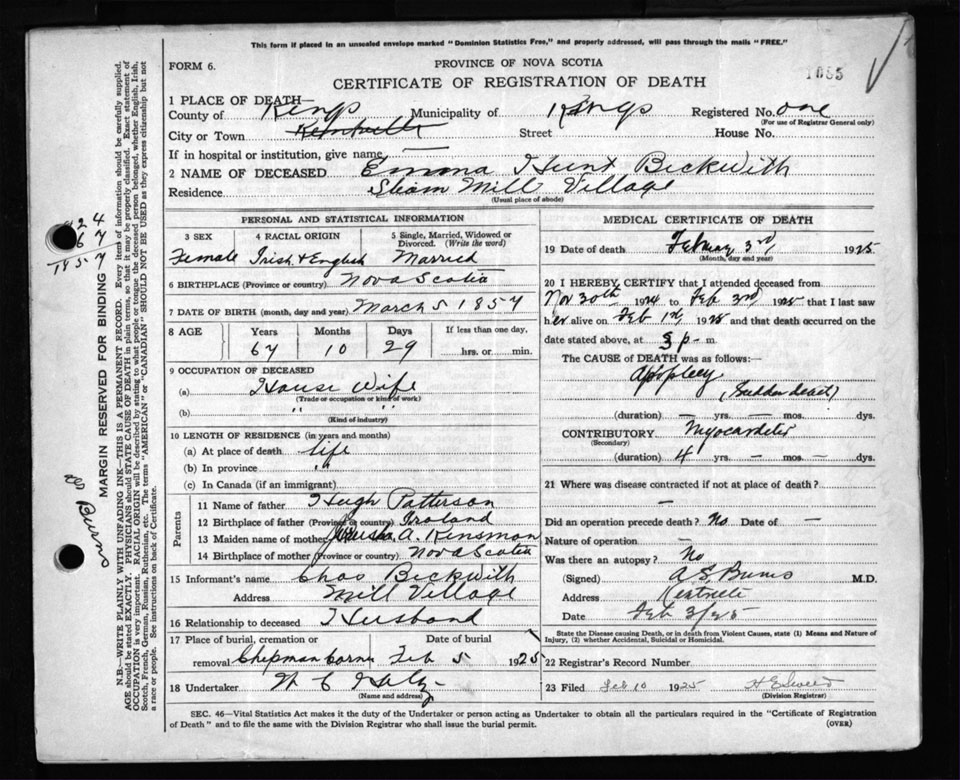 This form if placed in an unsealed envelope marked "Dominion Statistics Free," and properly addressed, will pass through the mails "FREE."
FORM 6.
PROVINCE OF NOVA SCOTIA
CERTIFICATE OF REGISTRATION OF DEATH
1055
1 PLACE OF DEATH—
County of Kings Municipality of Kings Registered No. one
(For use of Registrar General only)
City or Town Kentville Street House No.
If in hospital or institution, give name —
2 NAME OF DECEASED Emma Hunt Beckwith
Residence Steam Mill Village
(Usual place of abode)
PERSONAL AND STATISTICAL INFORMATION
3 SEX 4 RACIAL ORIGIN 5 Single, Married, Widowed or Divorced. (Write the word)
Female Irish & English Married
6 BIRTHPLACE (Province or country) Nova Scotia
7 DATE OF BIRTH (month, day and year) March 5 1857
8 AGE Years Months Days If less than one day,
67 10 29 hrs. or min.
9 OCCUPATION OF DECEASED
(a) House Wife
(Trade or occupation or kind of work)
(b) " "
(Kind of industry)
10 LENGTH OF RESIDENCE (in years and months)
(a) At place of death life
(b) In province "
(c) In Canada (if an immigrant)
Parents
11 Name of father Hugh Patterson
12 Birthplace of father (Province or country) Ireland
13 Maiden name of mother A. Kinsman
14 Birthplace of mother (Province or country) Nova Scotia
15 Informant's name Chas Beckwith
Address Mill Village
16 Relationship to deceased Husband
17 Place of burial, cremation or removal Date of burial
Chipman Corner Feb 5 1925
18 Undertaker W C
(Name and address)
MEDICAL CERTIFICATE OF DEATH
19 Date of death February 3rd 1925
(Month, day and year)
20 I HEREBY CERTIFY that I attended deceased from
Nov 30th 1924 to Feb 3rd 1925 that I last saw
her alive on Feb 1st 1925 and that death occurred on
date stated above, at 3 p— m.
The CAUSE of DEATH was as follows:
Apoplexy
(Sudden death)
(duration) — yrs. — mos. dys.
CONTRIBUTORY Myocarditis
(Secondary)
(duration) 4 yrs. — mos. — dys.
21 Where was disease contracted if not at place of death?
—
Did an operation precede death? No Date of —
Nature of operation —
Was there an autopsy? No
(Signed) A S Burns M.D.
Address Kentville
Date Feb 3/25
State the Disease causing Death, or in death from Violent Causes, state (1) Means and Nature of Injury, (2) whether Accidental, Suicidal or Homicidal.
22 Registrar's Record Number
23 Filed Feb 10 1925
(Division Registrar)
SEC. 46—Vital Statistics Act makes it the duty of the Undertaker or person acting as Undertaker to obtain all the particulars required in the "Certificate of Registration of Death" and to file the same with the Division Registrar who shall issue the burial permit.
(OVER)
MARGIN RESERVED FOR BINDING
N.B.—WRITE PLAINLY WITH UNFADING INK—THIS IS A PERMANENT RECORD. Every item of information should be carefully supplied.
AGE should be stated EXACTLY. PHYSICIANS should STATE CAUSE OF DEATH in plain terms, so that it may be properly classified. Exact statement of
OCCUPATION is very important. RACIAL ORIGIN will be described by stating to what people or tongue the deceased person belonged, whether English, Irish,
Scotch, French, German, Russian, Ruthenian, etc. The terms "AMERICAN" or "CANADIAN" SHOULD NOT BE USED as they express citizenship but not
a race or people. See instructions on back of Certificate.
1857